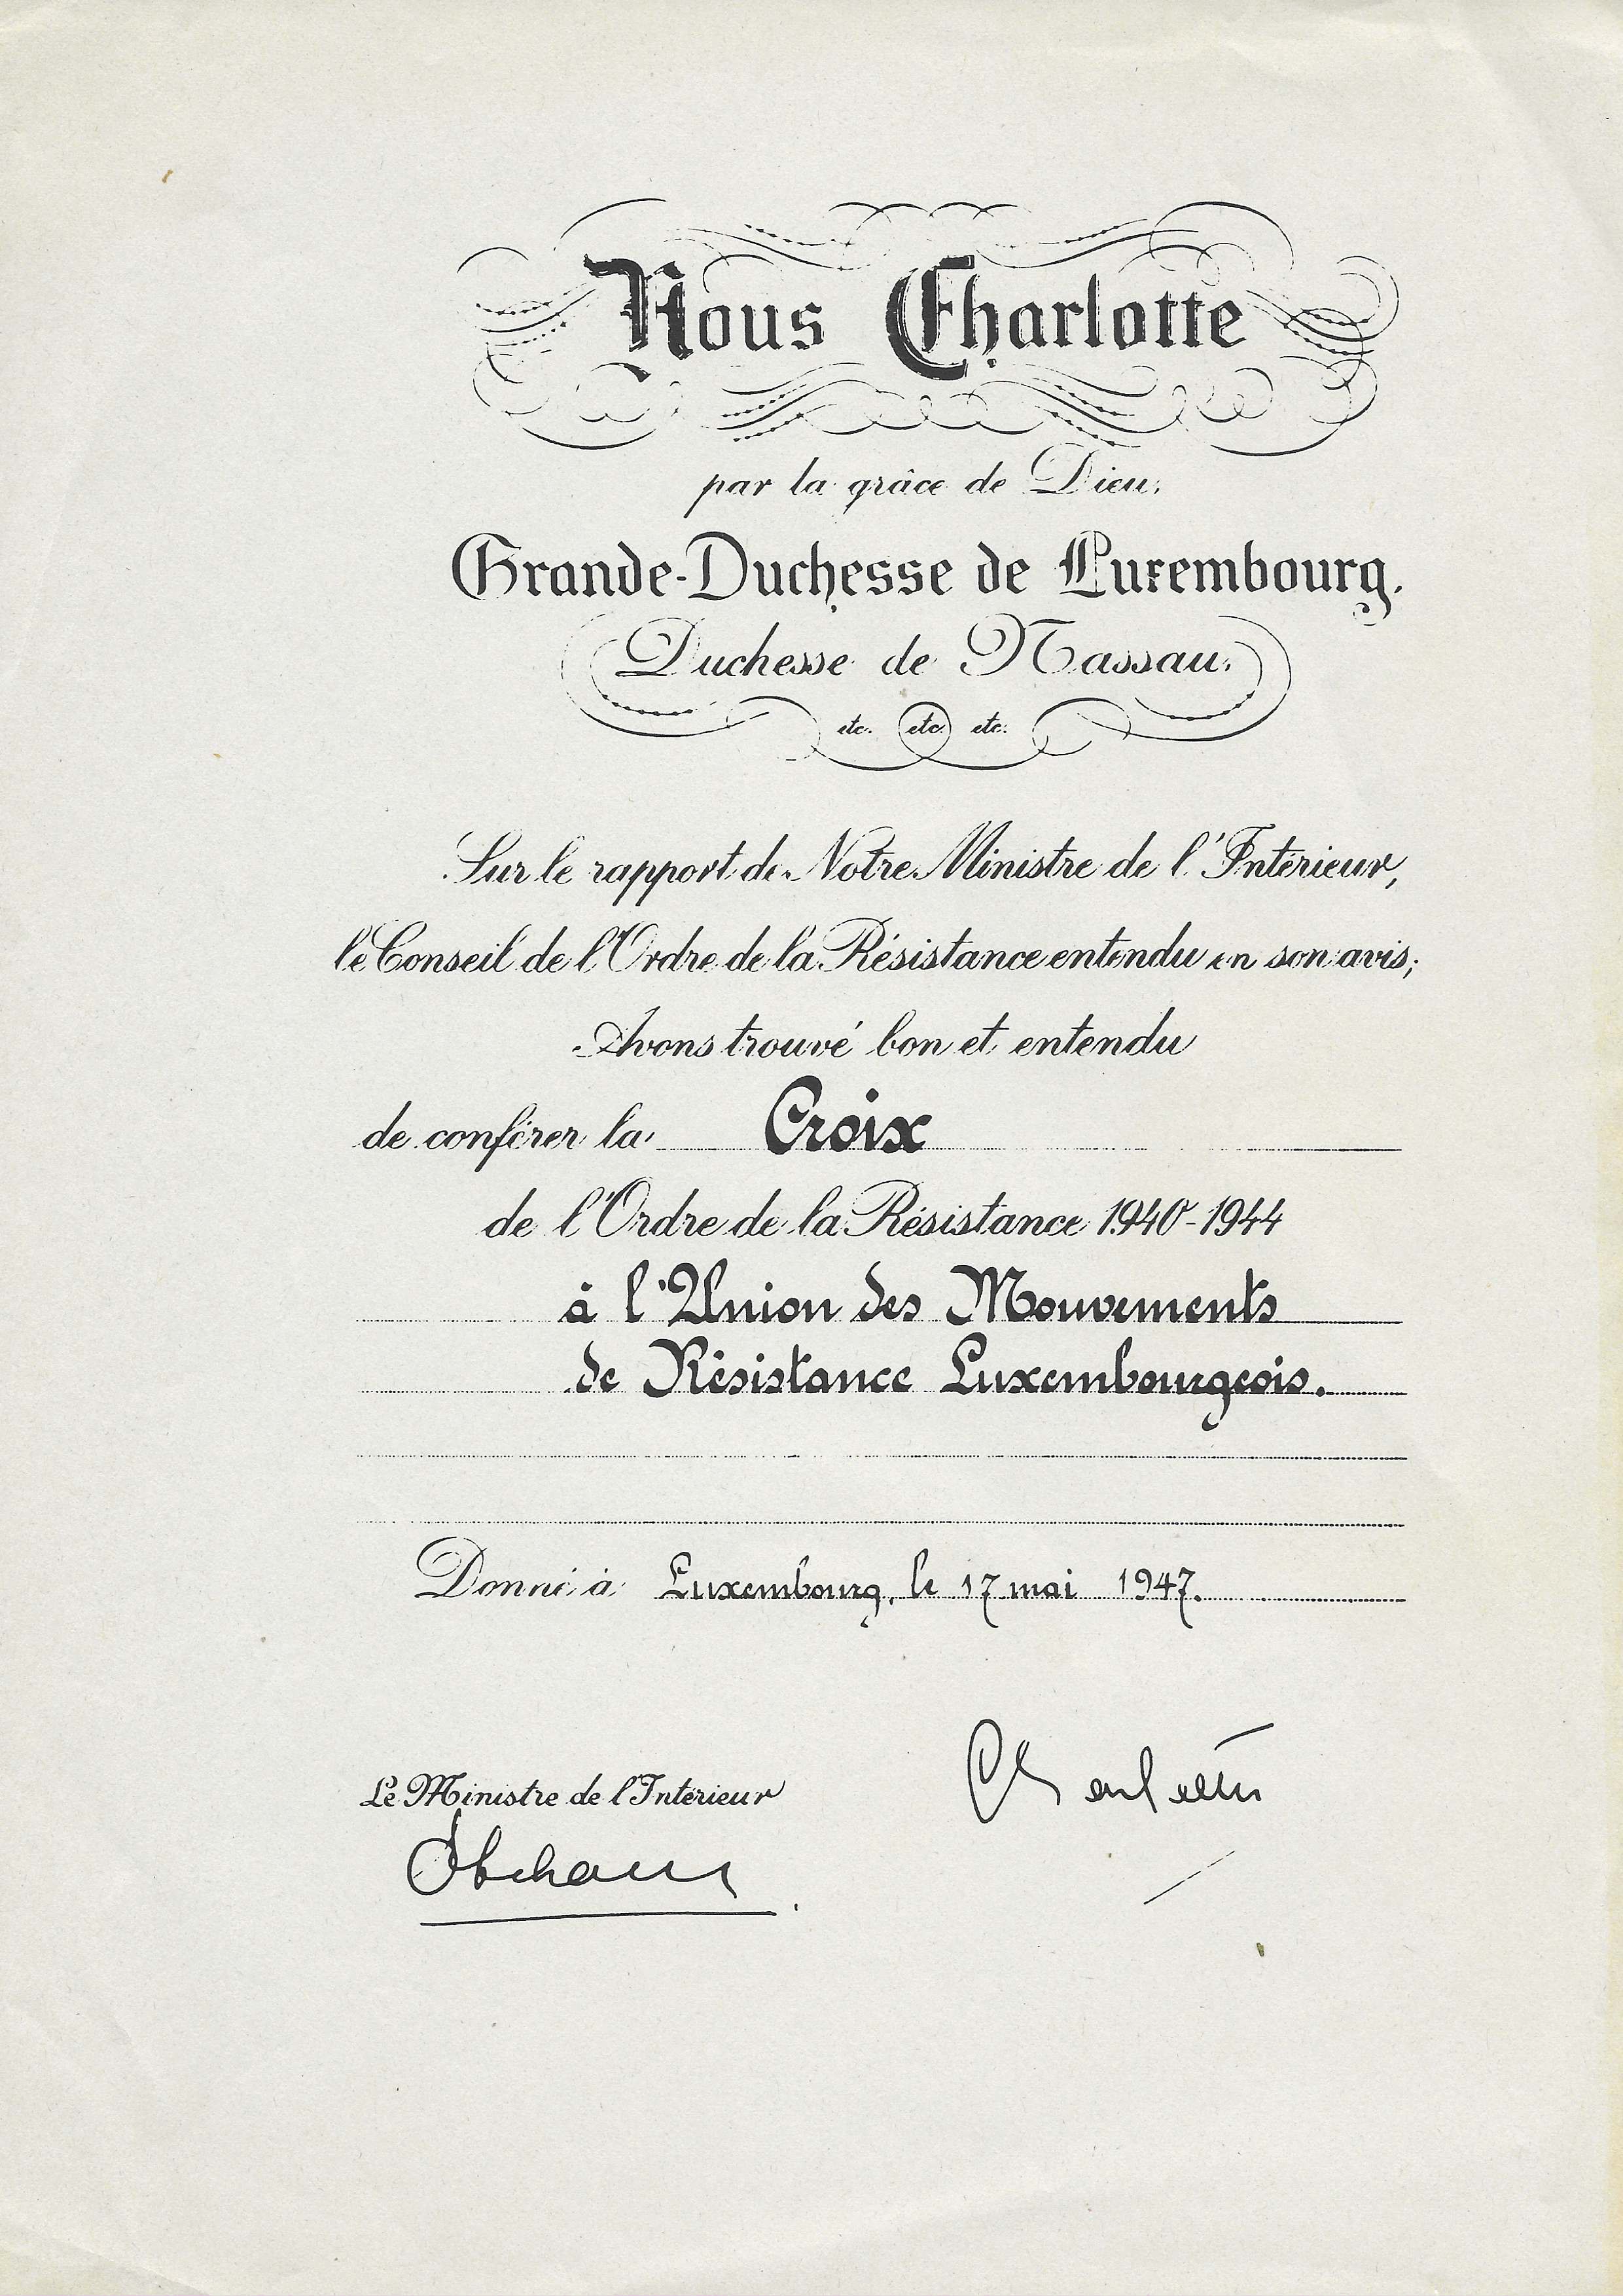 Nous Charlotte
par la grâce de Dieu,
Grande-Duchesse de Luxembourg,
Duchesse de Nassau,
etc. etc. etc.
Sur le rapport de Notre Ministre de l'Intérieur,
le Conseil de l'Ordre de la Résistance entendu en son avis;
Avons trouvé bon et entendu
de conférer la Croix
de l'Ordre de la Résistance 1940-1944
à l'Union des Mouvements
de Résistance Luxembourgeois.
Donné à Luxembourg, le 17 mai 1947.
Charlotte
Le Ministre de l'Intérieur